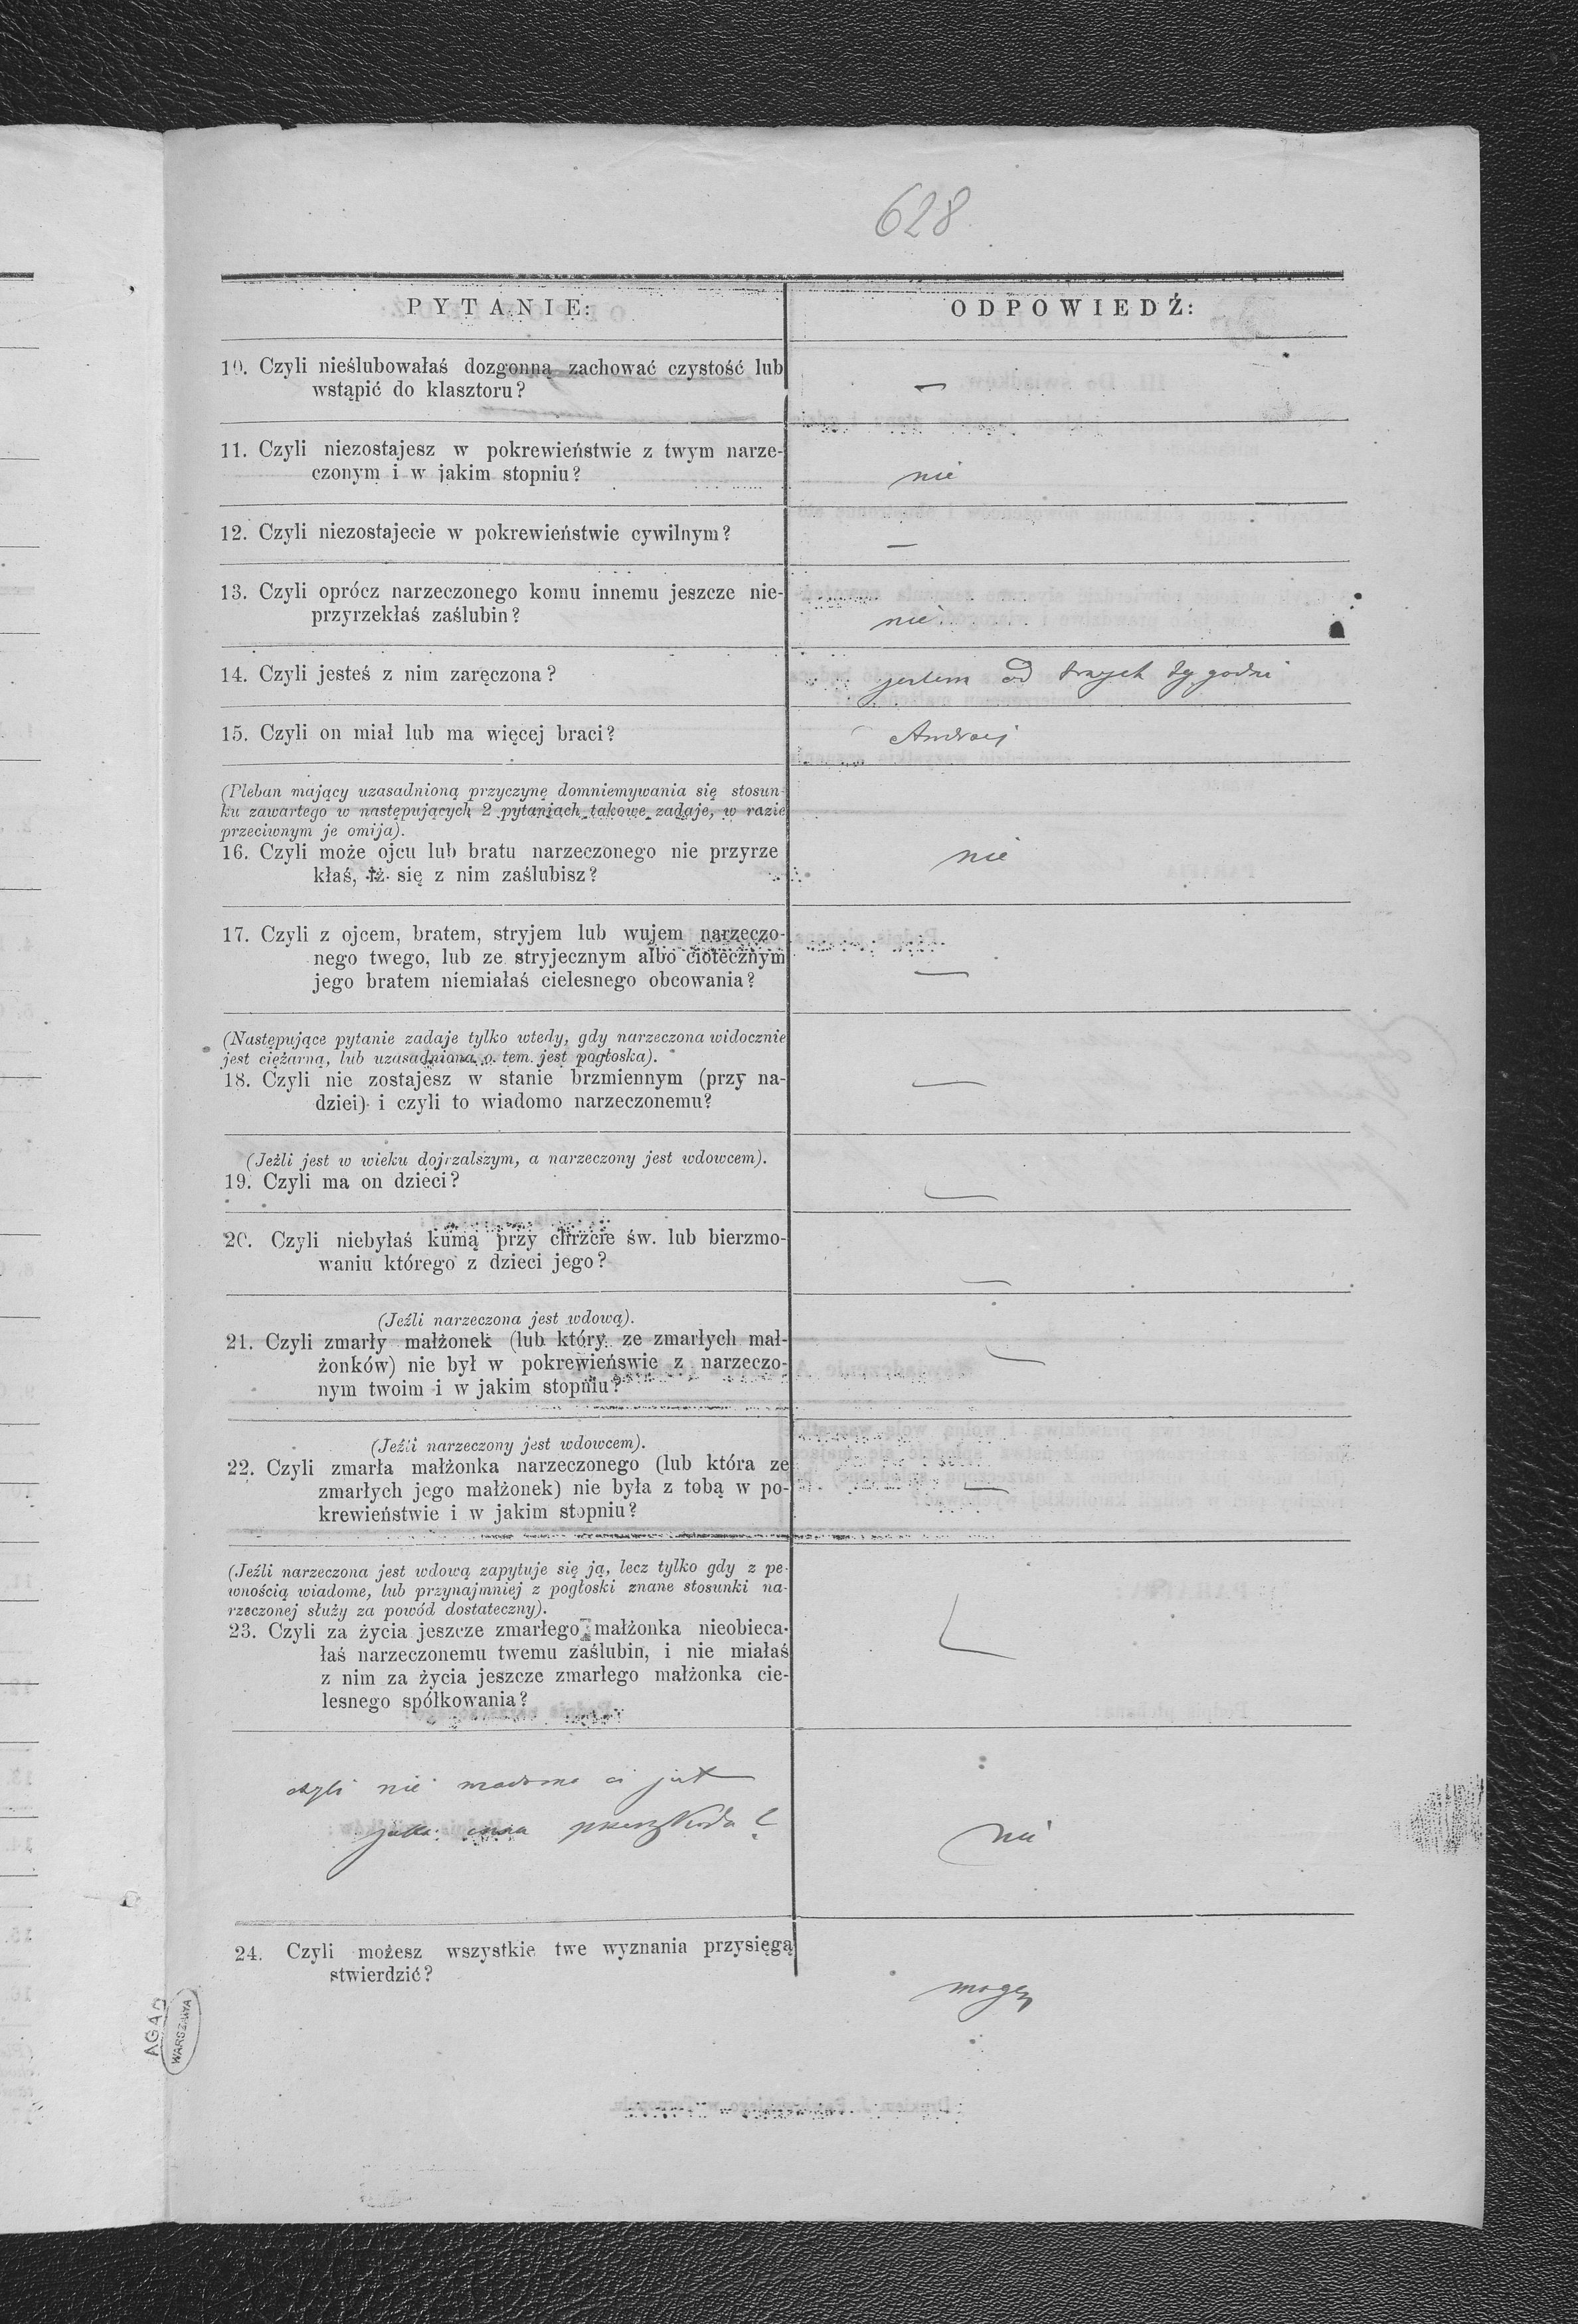 628
PYTANIE:
ODPOWIEDŹ:
10. Czyli nieślubowałaś dozgonną zachować czystość lub
wstąpić do klasztoru?
—
11. Czyli niezostajesz w pokrewieństwie z twym narze-
czonym i w jakim stopniu?
nie
12. Czyli niezostajecie w pokrewieństwie cywilnym?
—
13. Czyli oprócz narzeczonego komu innemu jeszcze nie-
przyrzekłaś zaślubin?
nie
14. Czyli jesteś z nim zaręczona?
jestem od trzech tygodni
15. Czyli on miał lub ma więcej braci?
Andrzej
(Pleban mający uzasadnioną przyczynę domniemywania się stosun-
ku zawartego w następujących 2 pytaniach takowe zadaje, w razie
przeciwnym je omija).
16. Czyli może ojcu lub bratu narzeczonego nie przyrze
kłaś, iż się z nim zaślubisz?
nie
17. Czyli z ojcem, bratem, stryjem lub wujem narzeczo-
nego twego, lub ze stryjecznym albo ciotecznym
jego bratem niemiałaś cielesnego obcowania?
—
(Następujące pytanie zadaje tylko wtedy, gdy narzeczona widocznie
jest ciężarną, lub uzasadniona o tem jest pogłoska).
18. Czyli nie zostajesz w stanie brzmiennym (przy na-
dziei) i czyli to wiadomo narzeczonemu?
—
(Jeżli jest w wieku dojrzalszym, a narzeczony jest wdowcem).
19. Czyli ma on dzieci?
—
20. Czyli niebyłaś kumą przy chrzcie św. lub bierzmo-
waniu którego z dzieci jego?
—
(Jeźli narzeczona jest wdową).
21. Czyli zmarły małżonek (lub który ze zmarłych mał-
żonków) nie był w pokrewieńswie z narzeczo-
nym twoim i w jakim stopniu?
—
(Jeźli narzeczony jest wdowcem).
22. Czyli zmarła małżonka narzeczonego (lub która ze
zmarłych jego małżonek) nie była z tobą w po-
krewieństwie i w jakim stopniu?
—
(Jeźli narzeczona jest wdową zapytuje się ją, lecz tylko gdy z pe-
wnością wiadome, lub przynajmniej z pogłoski znane stosunki na-
rzeczonej służy za powód dostateczny).
23. Czyli za życia jeszcze zmarłego małżonka nieobieca-
łaś narzeczonemu twemu zaślubin, i nie miałaś
z nim za życia jeszcze zmarłego małżonka cie-
lesnego spółkowania?
—
czyli nie wiadoma ci jest
jaka inna przeszkoda?
nie
24. Czyli możesz wszystkie twe wyznania przysięgą
stwierdzić?
mogę
AGAD
WARSZAWA